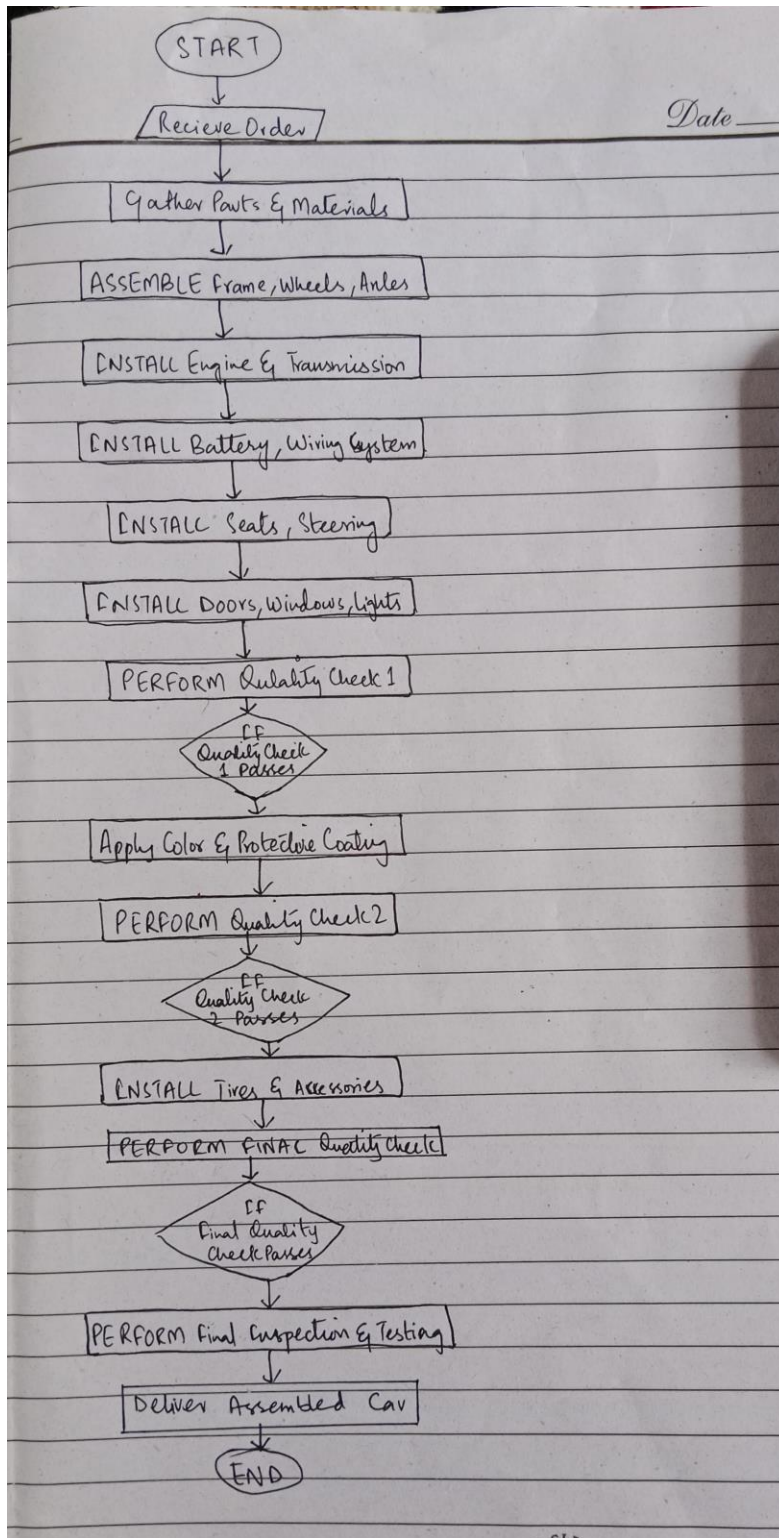 START
Recieve Order
Date
Gather Parts & Materials
ASSEMBLE Frame, Wheels, Axles
INSTALL Engine & Transmission
INSTALL Battery, Wiring System
INSTALL Seats, Steering
INSTALL Doors, Windows, Lights
PERFORM Qulality Check 1
IF
Quality Check
1 Passes
Apply Color & Protective Coating
PERFORM Quality Check 2
IF
Quality Check
2 Passes
INSTALL Tires & Accessories
PERFORM FINAL Quality Check
IF
Final Quality
Check Passes
PERFORM Final Inspection & Testing
Deliver Assembled Car
END